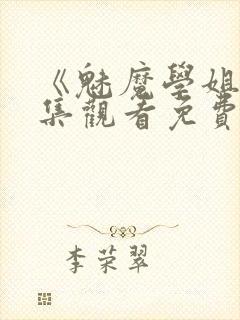 《魅魔學姐
集觀看免費
李荣翠